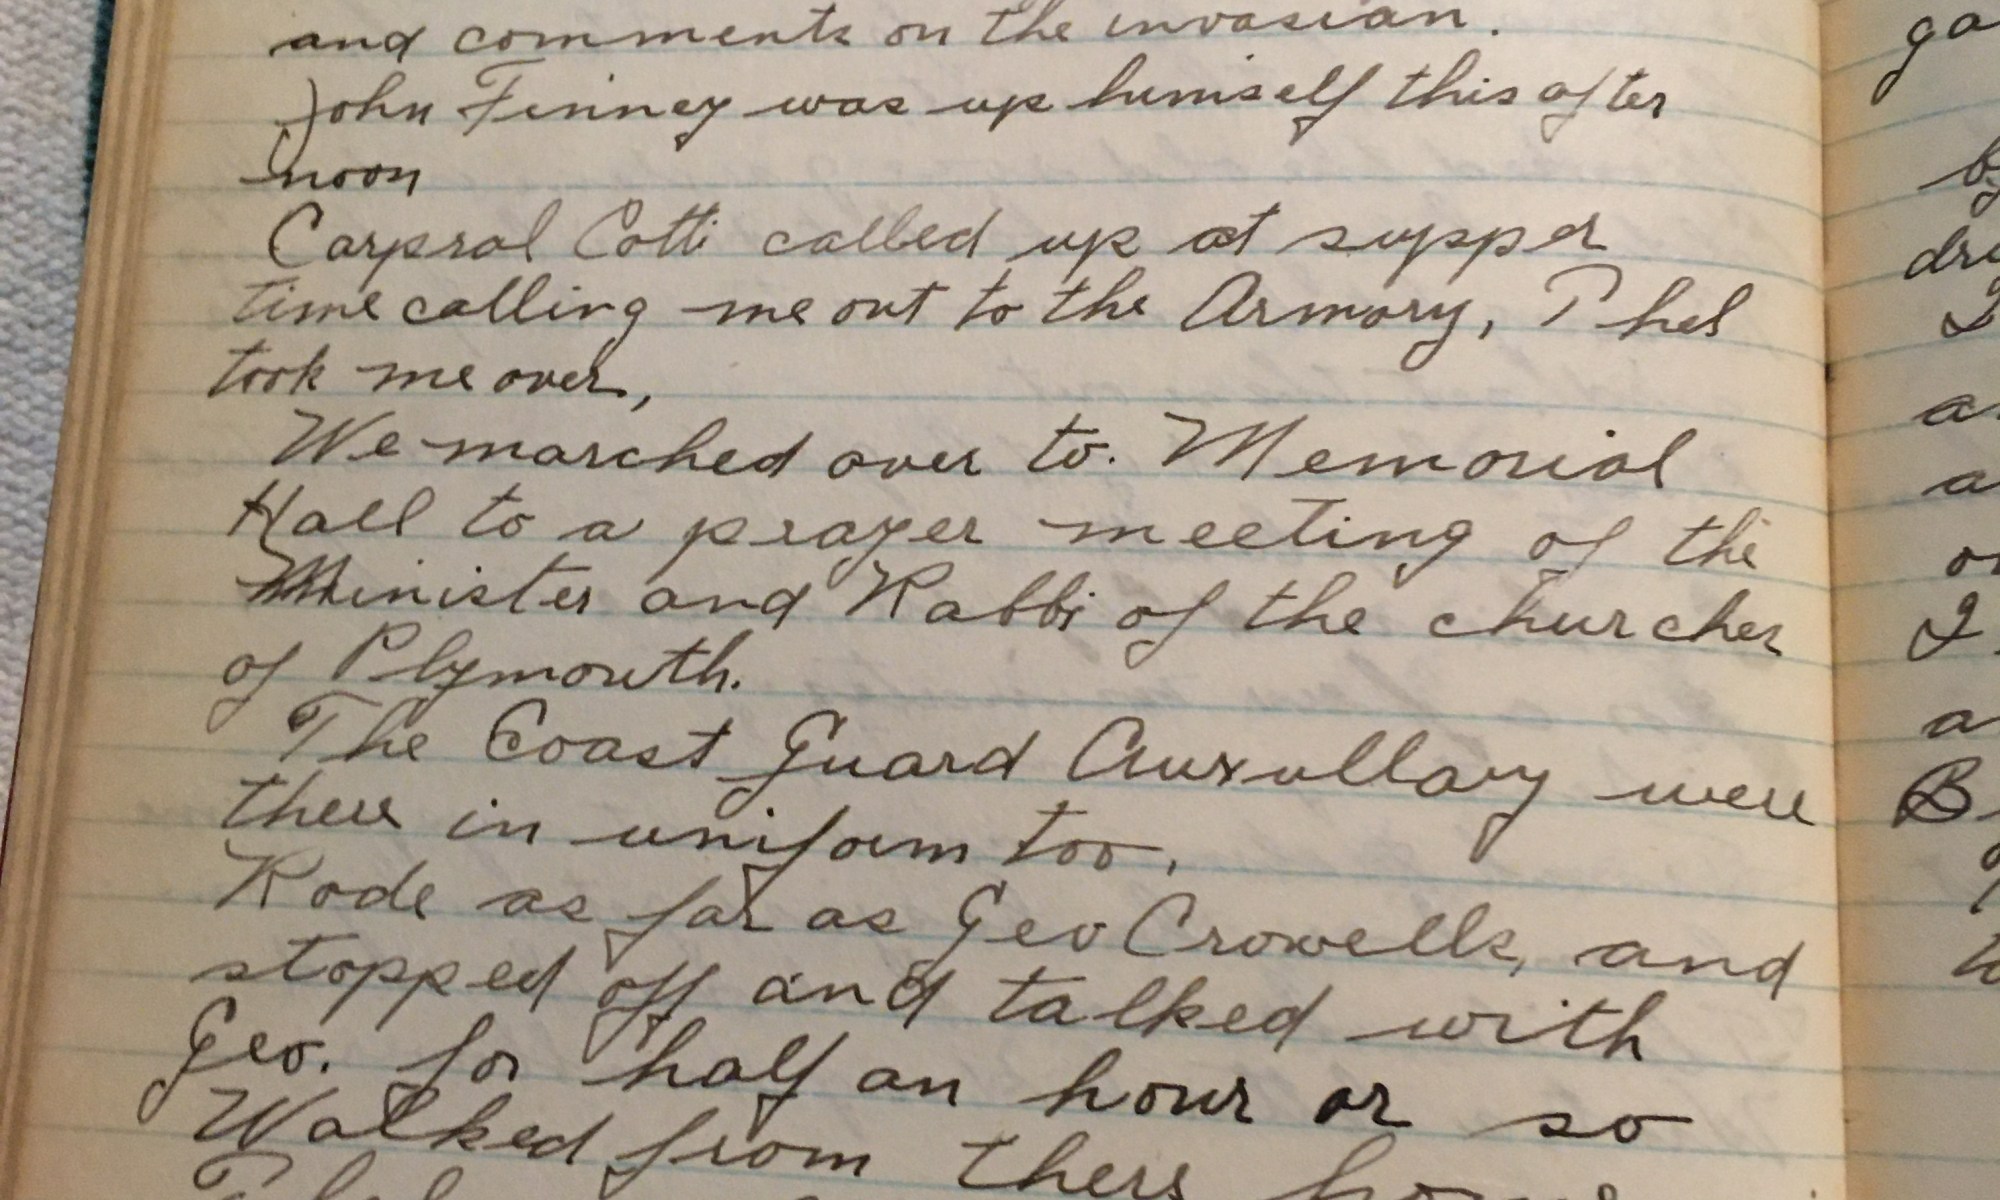 and comments on the invasian.
John Finney was up himself this after
noon
Carpral Cotti called up at supper
time calling me out to the Armory, Phel
took me over,
We marched over to. Memorial
Hall to a prayer meeting of the
Minister and Rabbi of the churches
of Plymouth.
The Coast Guard Auxullary were
there in uniform too.
Rode as far as Geo Crowells, and
stopped off and talked with
Geo. for half an hour or so
Walked from there